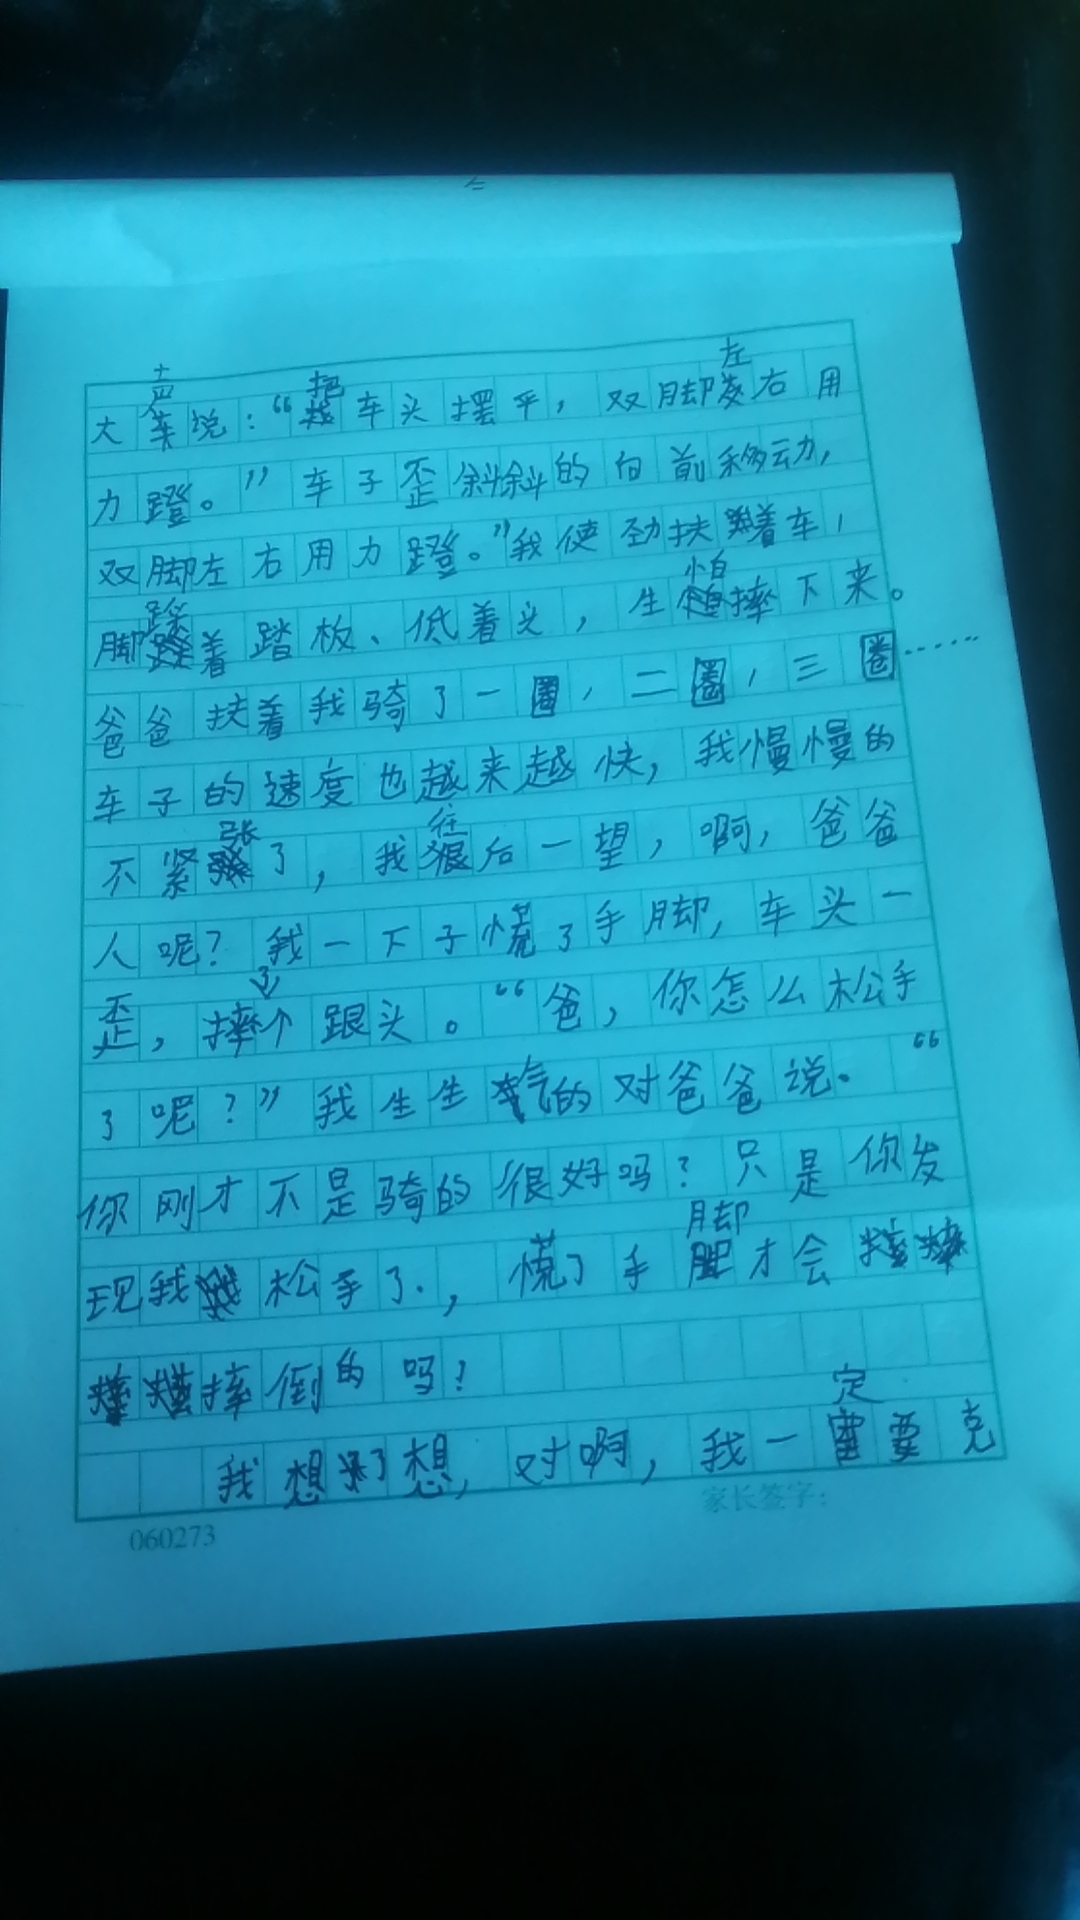 大声说：“把车头摆平，双脚左右用
力蹬。”车子歪斜斜的向前移动，
双脚左右用力蹬。”我使劲扶着车，
脚踩着踏板、低着头，生怕摔下来。
爸爸扶着我骑了一圈，二圈，三圈……
车子的速度也越来越快，我慢慢的
不紧张了，我往后一望，啊，爸爸
人呢？我一下子慌了手脚，车头一
歪，摔了个跟头。“爸，你怎么松手
了呢？”我生生气的对爸爸说。“
你刚才不是骑的很好吗？只是你发
现我松手了.，慌了手脚才会
摔倒的吗！
我想了想，对啊，我一定要克
060273
家长签字：